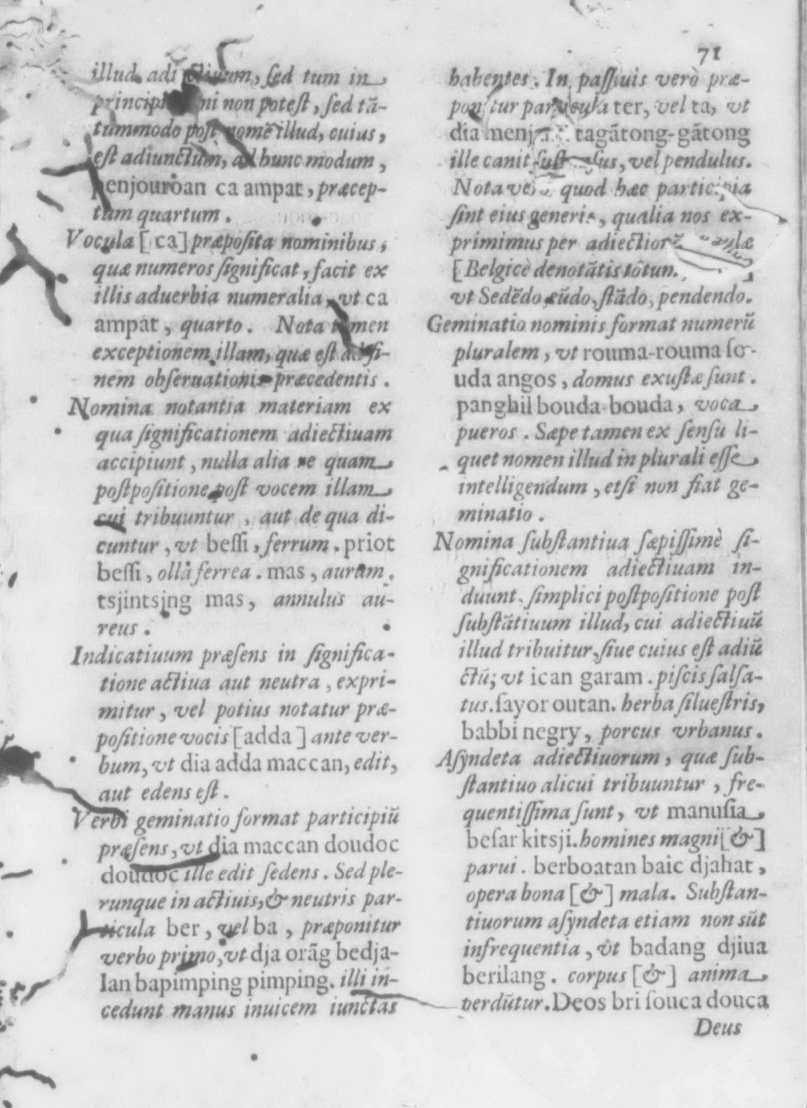 71
illud adiectiuum, ſed tum in
principio poni non poteſt, ſed tā-
tummodo poſt nomē illud, cuius,
eſt adiunctum, ad hunc modum,
penjouroan ca ampat, præcep-
tum quartum.
Vocula [ ca] præpoſita nominibus,
quæ numeros ſignificat, facit ex
illis aduerbia numeralia, vt ca
ampat, quarto. Nota tamen
exceptionem illam, quæ eſt ad fi-
nem obſeruationis præcedentis.
Nomina notantia materiam ex
qua ſignificationem adiectiuam
accipiunt, nulla alia quam
poſtpoſitione poſt vocem illam
cui tribuuntur, aut de qua di-
cuntur, vt beſſi, ferrum. priot
beſſi, olla ferrea. mas, aurum.
tsjintsjng mas, annulus au-
reus.
Indicatiuum præſens in ſignifica-
tione actiua aut neutra, expri-
mitur, vel potius notatur præ-
poſitione vocis [adda] ante ver-
bum, vt dia adda maccan, edit,
aut edens eſt.
Verbi geminatio format participiū
præſens, vt dia maccan doudoc
doudoc ille edit ſedens. Sed ple-
runque in actiuis, & neutris par-
ticula ber, vel ba, præponitur
verbo primo, vt dja orāg bedja-
lan bapimping pimping. illi in-
cedunt manus inuicem iunctas
habentes. In paſſiuis verò præ-
ponitur particula ter, vel ta, vt
dia tagātong-gātong
ille canit vel pendulus.
Nota quod hæc participia
ſint eius generis, qualia nos ex-
primimus per
[Belgicè denotātis totun.
vt Sedēdo, eūdo, ſtādo, pendendo.
Geminatio nominis format numerū
pluralem, vt rouma-rouma ſo-
uda angos, domus exuſtæ ſunt.
panghil bouda-bouda, voca
pueros. Sæpe tamen ex ſenſu li-
quet nomen illud in plurali eſſe
intelligendum, etſi non fiat ge-
minatio.
Nomina ſubſtantiua ſæpiſſimè ſi-
gnificationem adiectiuam in-
duunt ſimplici poſtpoſitione poſt
ſubſtātiuum illud, cui adiectiuū
illud tribuitur, ſiue cuius eſt adiū
ctū; vt ican garam. piſcis ſalſa-
tus. ſayor outan. herba ſilueſtris,
babbi negry, porcus vrbanus.
Aſyndeta adiectiuorum, quæ ſub-
ſtantiuo alicui tribuuntur, fre-
quentiſſima ſunt, vt manuſia
beſar kitsji. homines magni [&]
parui. berboatan baic djahat,
opera bona [&] mala. Subſtan-
tiuorum aſyndeta etiam non sūt
infrequentia, vt badang djiua
berilang. corpus [&] anima
perdūtur. Deos bri ſouca douca
Deus